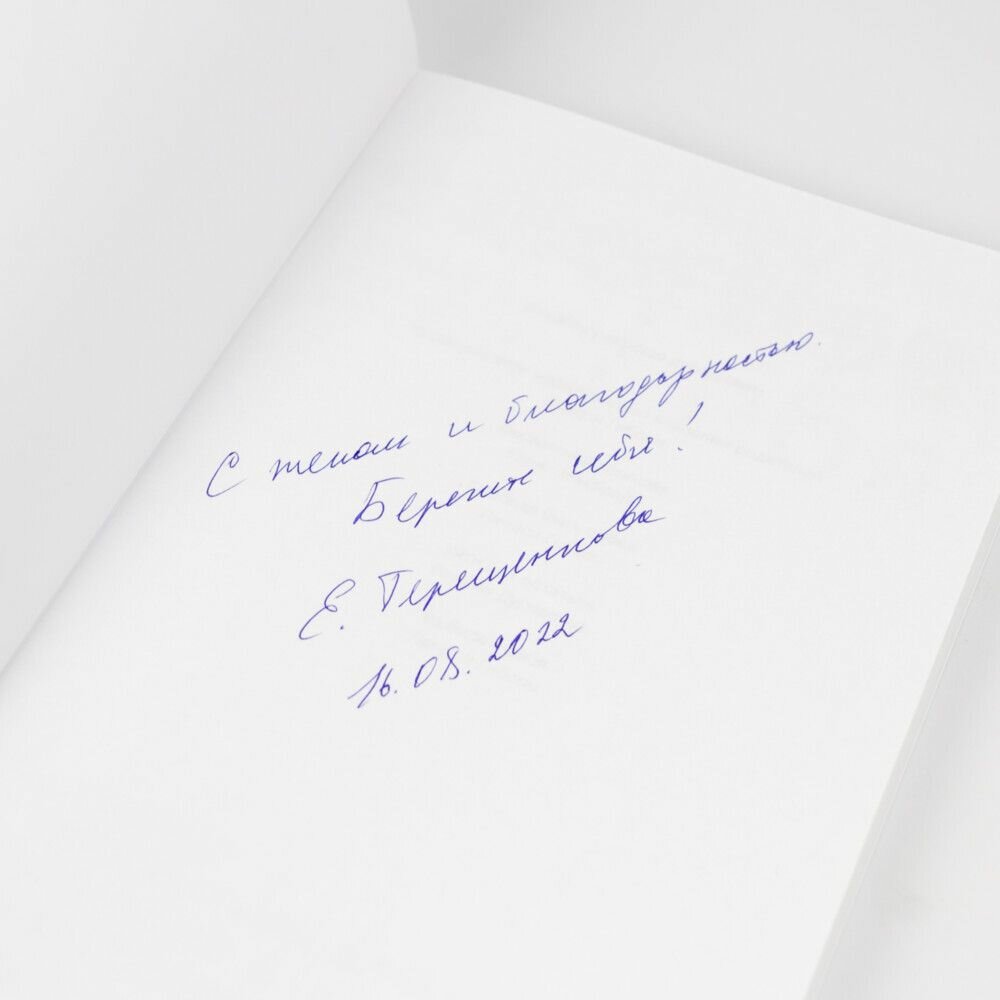 С теплом и благодарностью.
Берегите себя!
Е. Терещенкова
16.08.2022